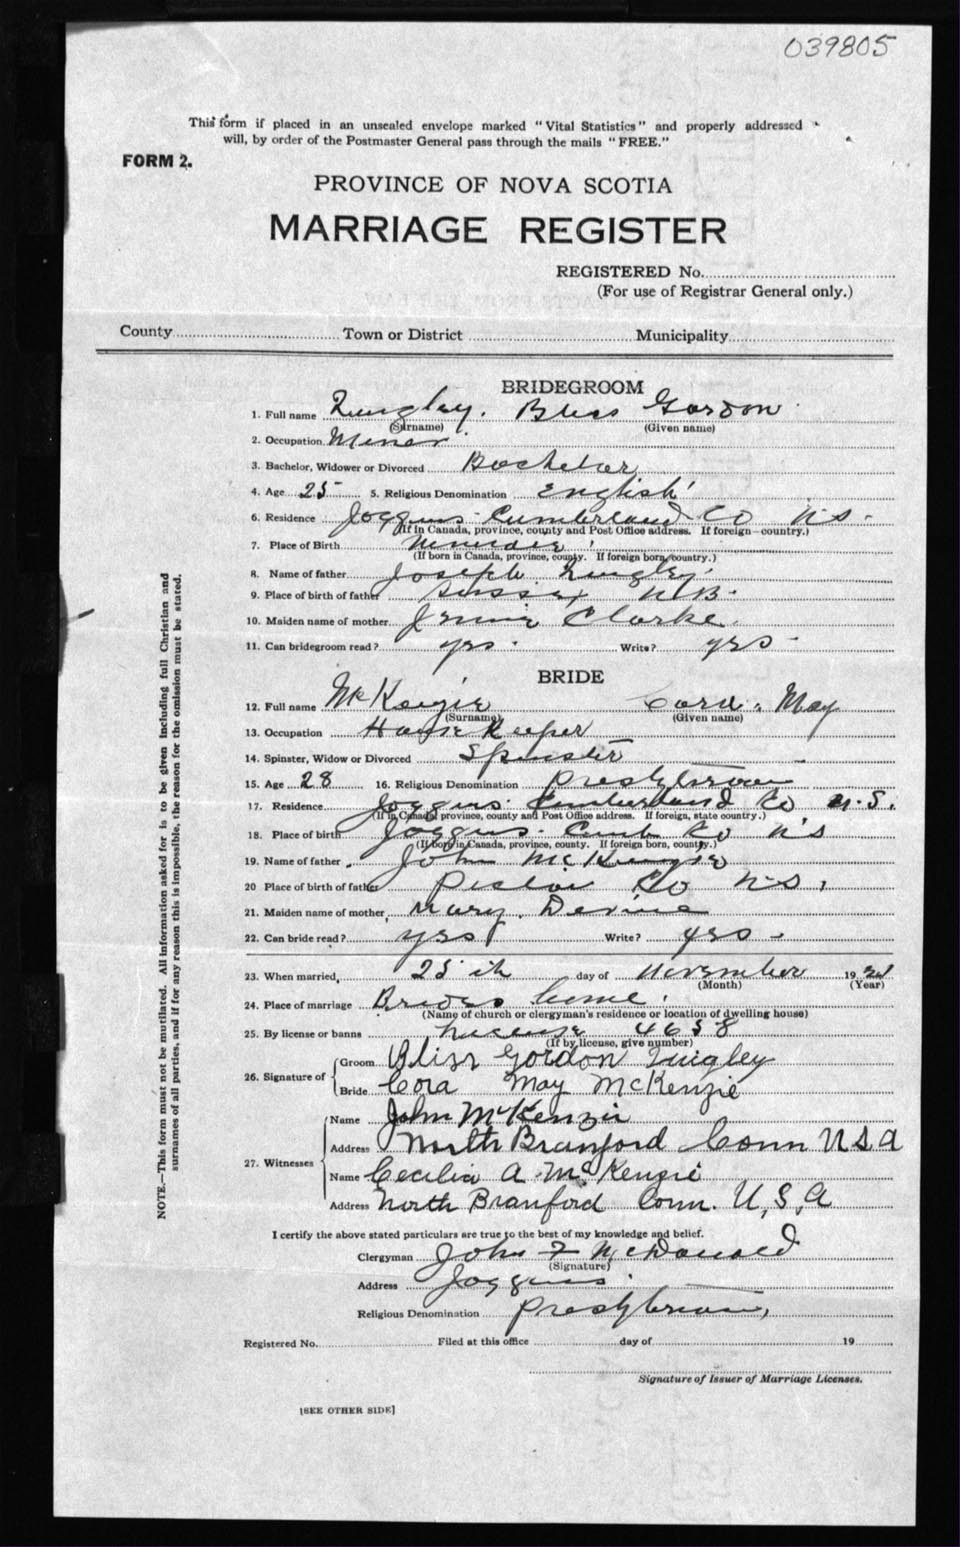 039805
This form if placed in an unsealed envelope marked "Vital Statistics" and properly addressed
will, by order of the Postmaster General pass through the mails "FREE."
FORM 2.
PROVINCE OF NOVA SCOTIA
MARRIAGE REGISTER
REGISTERED No.
(For use of Registrar General only.)
County Town or District Municipality
BRIDEGROOM
1. Full name Bliss Gordon
(Surname) (Given name)
2. Occupation Miner
3. Bachelor, Widower or Divorced Bachelor
4. Age 25 5. Religious Denomination English
6. Residence Joggins Cumberland Co N S
(If in Canada, province, county and Post Office address. If foreign—country.)
7. Place of Birth
(If born in Canada, province, county. If foreign born, country.)
8. Name of father Joseph
9. Place of birth of father Sussex N B
10. Maiden name of mother Jennie Clarke
11. Can bridegroom read? yes Write? yes
BRIDE
12. Full name McKenzie Cora May
(Surname) (Given name)
13. Occupation House Keeper
14. Spinster, Widow or Divorced Spinster
15. Age 28 16. Religious Denomination Presbyterian
17. Residence Joggins Cumberland Co N.S.
(If in Canada, province, county and Post Office address. If foreign, state country.)
18. Place of birth Joggins Cumb Co N S
(If born in Canada, province, county. If foreign born, country.)
19. Name of father John McKenzie
20 Place of birth of father Pictou Co N S
21. Maiden name of mother Mary Devine
22. Can bride read? yes Write? yes
23. When married, 25th day of November 19
(Month) (Year)
24. Place of marriage Brides home
(Name of church or clergyman's residence or location of dwelling house)
25. By license or banns License 4658
(If by license, give number)
26. Signature of Groom Bliss Gordon
Bride Cora May McKenzie
27. Witnesses Name John McKenzie
Address North Branford Conn U S A
Name Cecilia A McKenzie
Address North Branford Conn. U, S, A
I certify the above stated particulars are true to the best of my knowledge and belief.
Clergyman John F McDonald
(Signature)
Address Joggins
Religious Denomination Presbyterian,
Registered No. Filed at this office day of 19
Signature of Issuer of Marriage Licenses.
[SEE OTHER SIDE]
NOTE.—This form must not be mutilated. All information asked for is to be given including full Christian and
surnames of all parties, and if for any reason this is impossible, the reason for the omission must be stated.